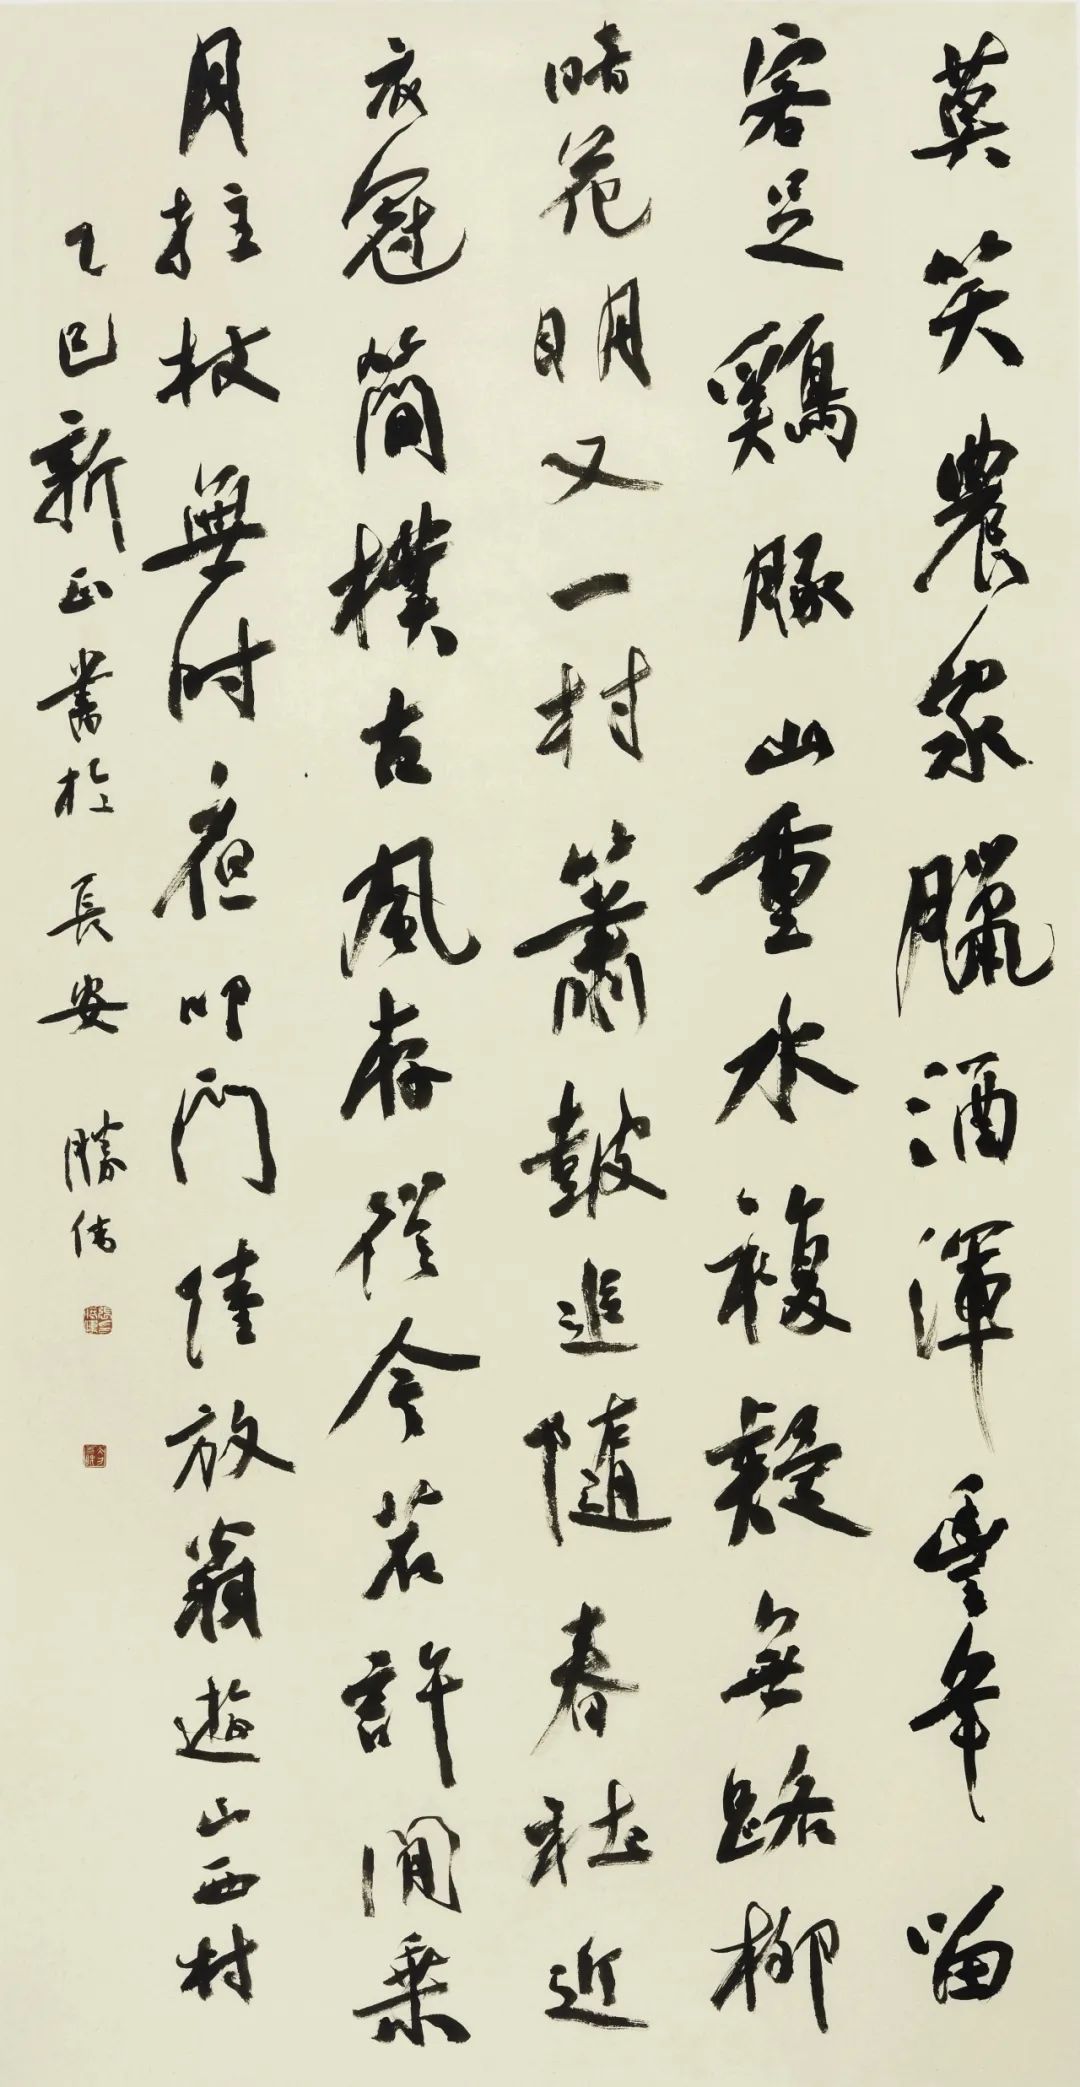 莫笑農家臘酒渾豐年留
客足鷄豚山重水複疑無路柳
暗花明又一村簫鼓追隨春社近
衣冠簡樸古風存從今若許閒乗
月拄杖無时夜叩門陸放翁遊山西村
乙巳新正書於長安勝偉